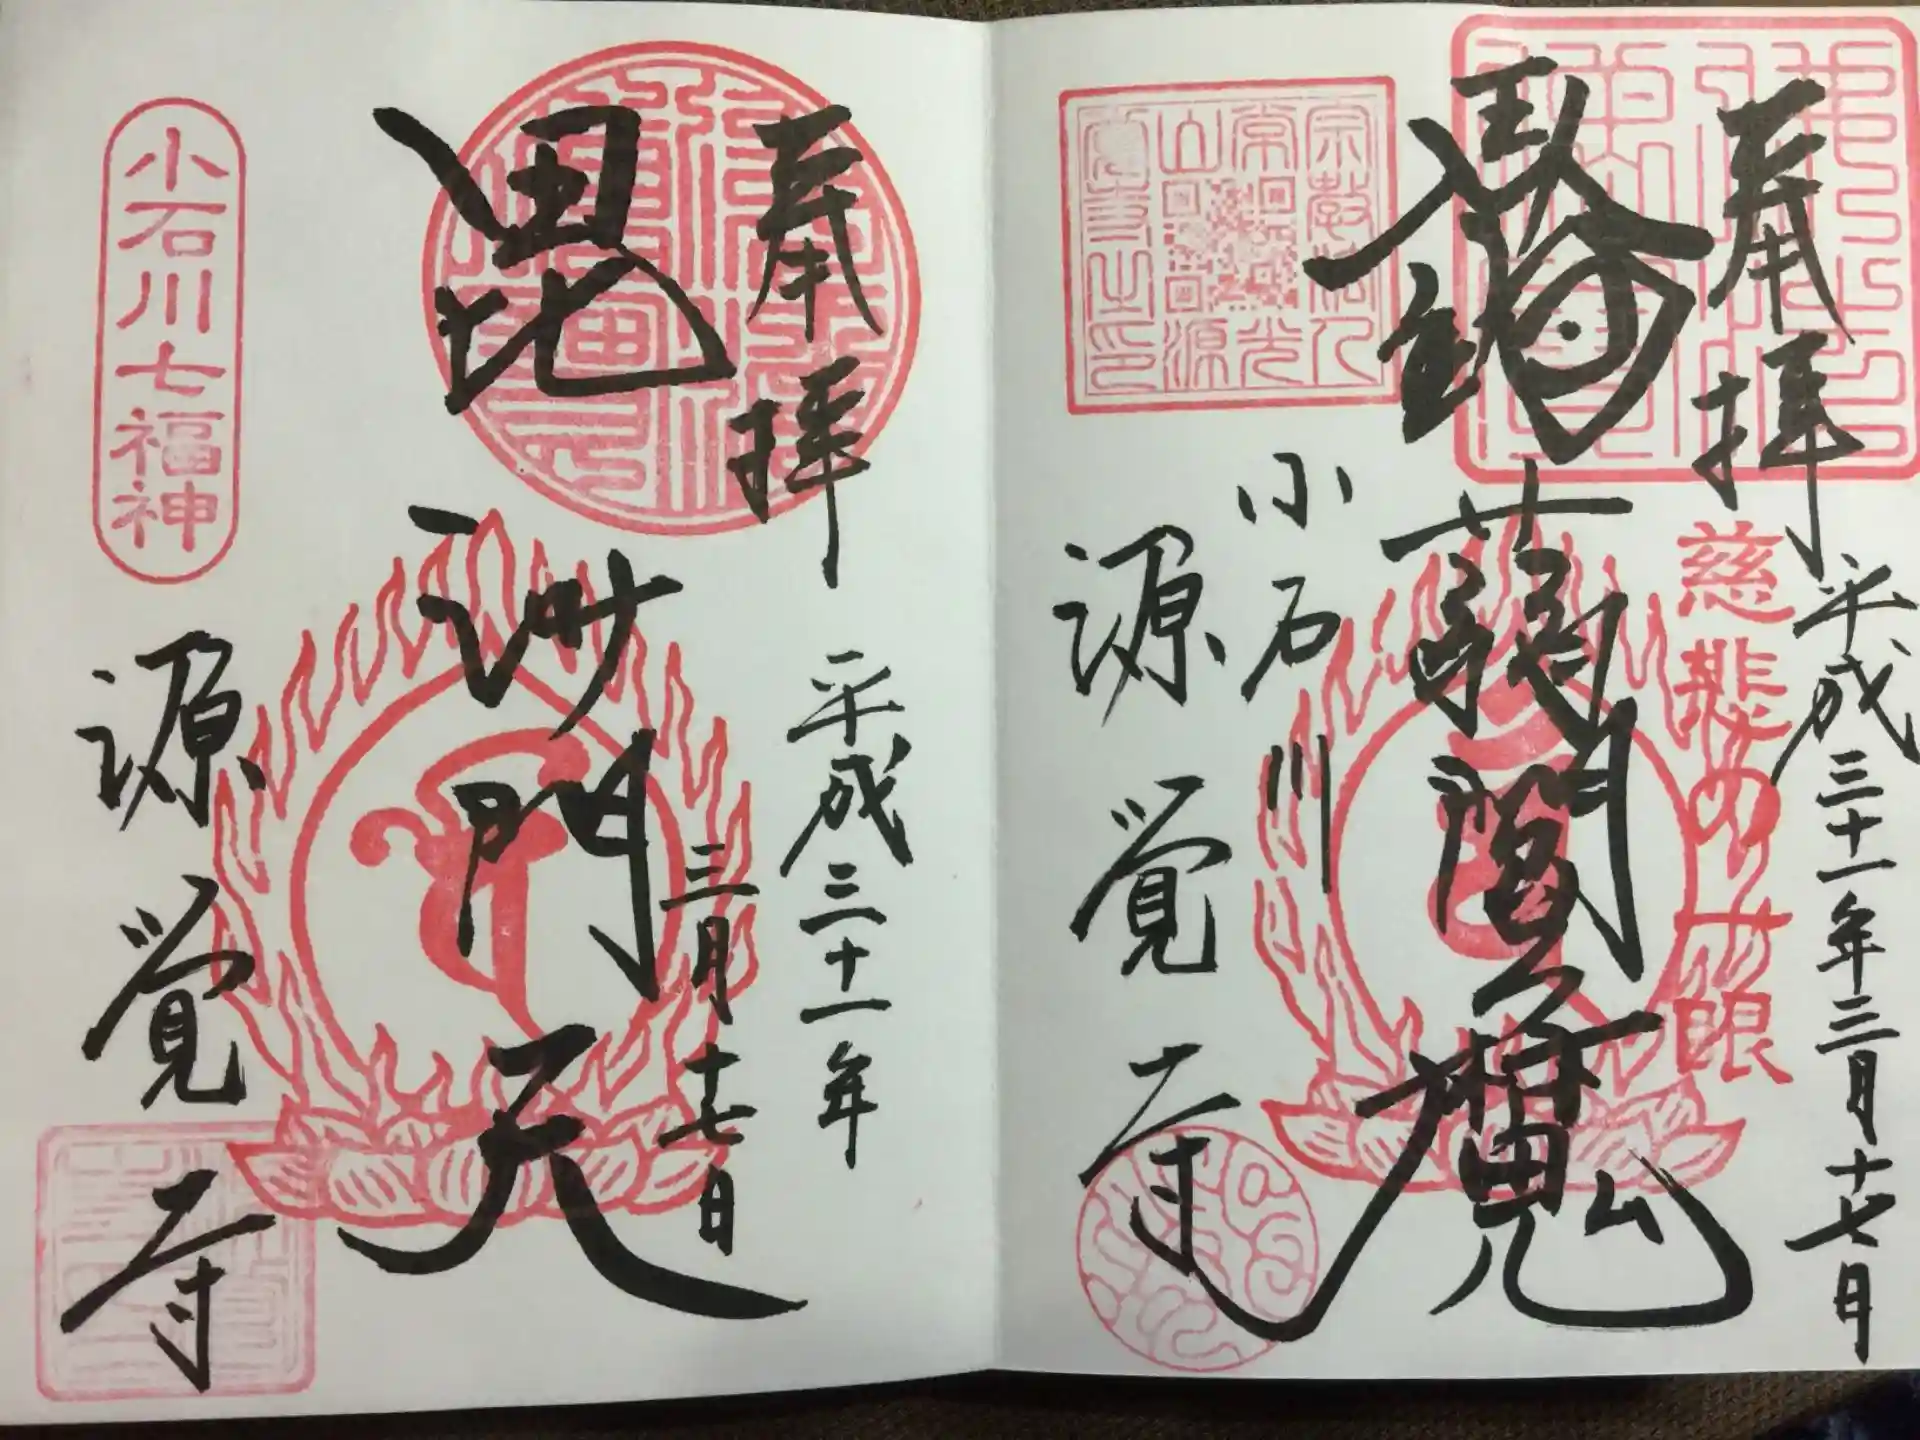 奉拝
平成三十一年三月十七日
慈悲の一眼
蒟蒻閻魔
小石川
源覚寺
宗教法人
常光
山源
覚寺之印
奉拝
平成三十一年
三月十七日
毘沙門天
源覚寺
小石川七福神